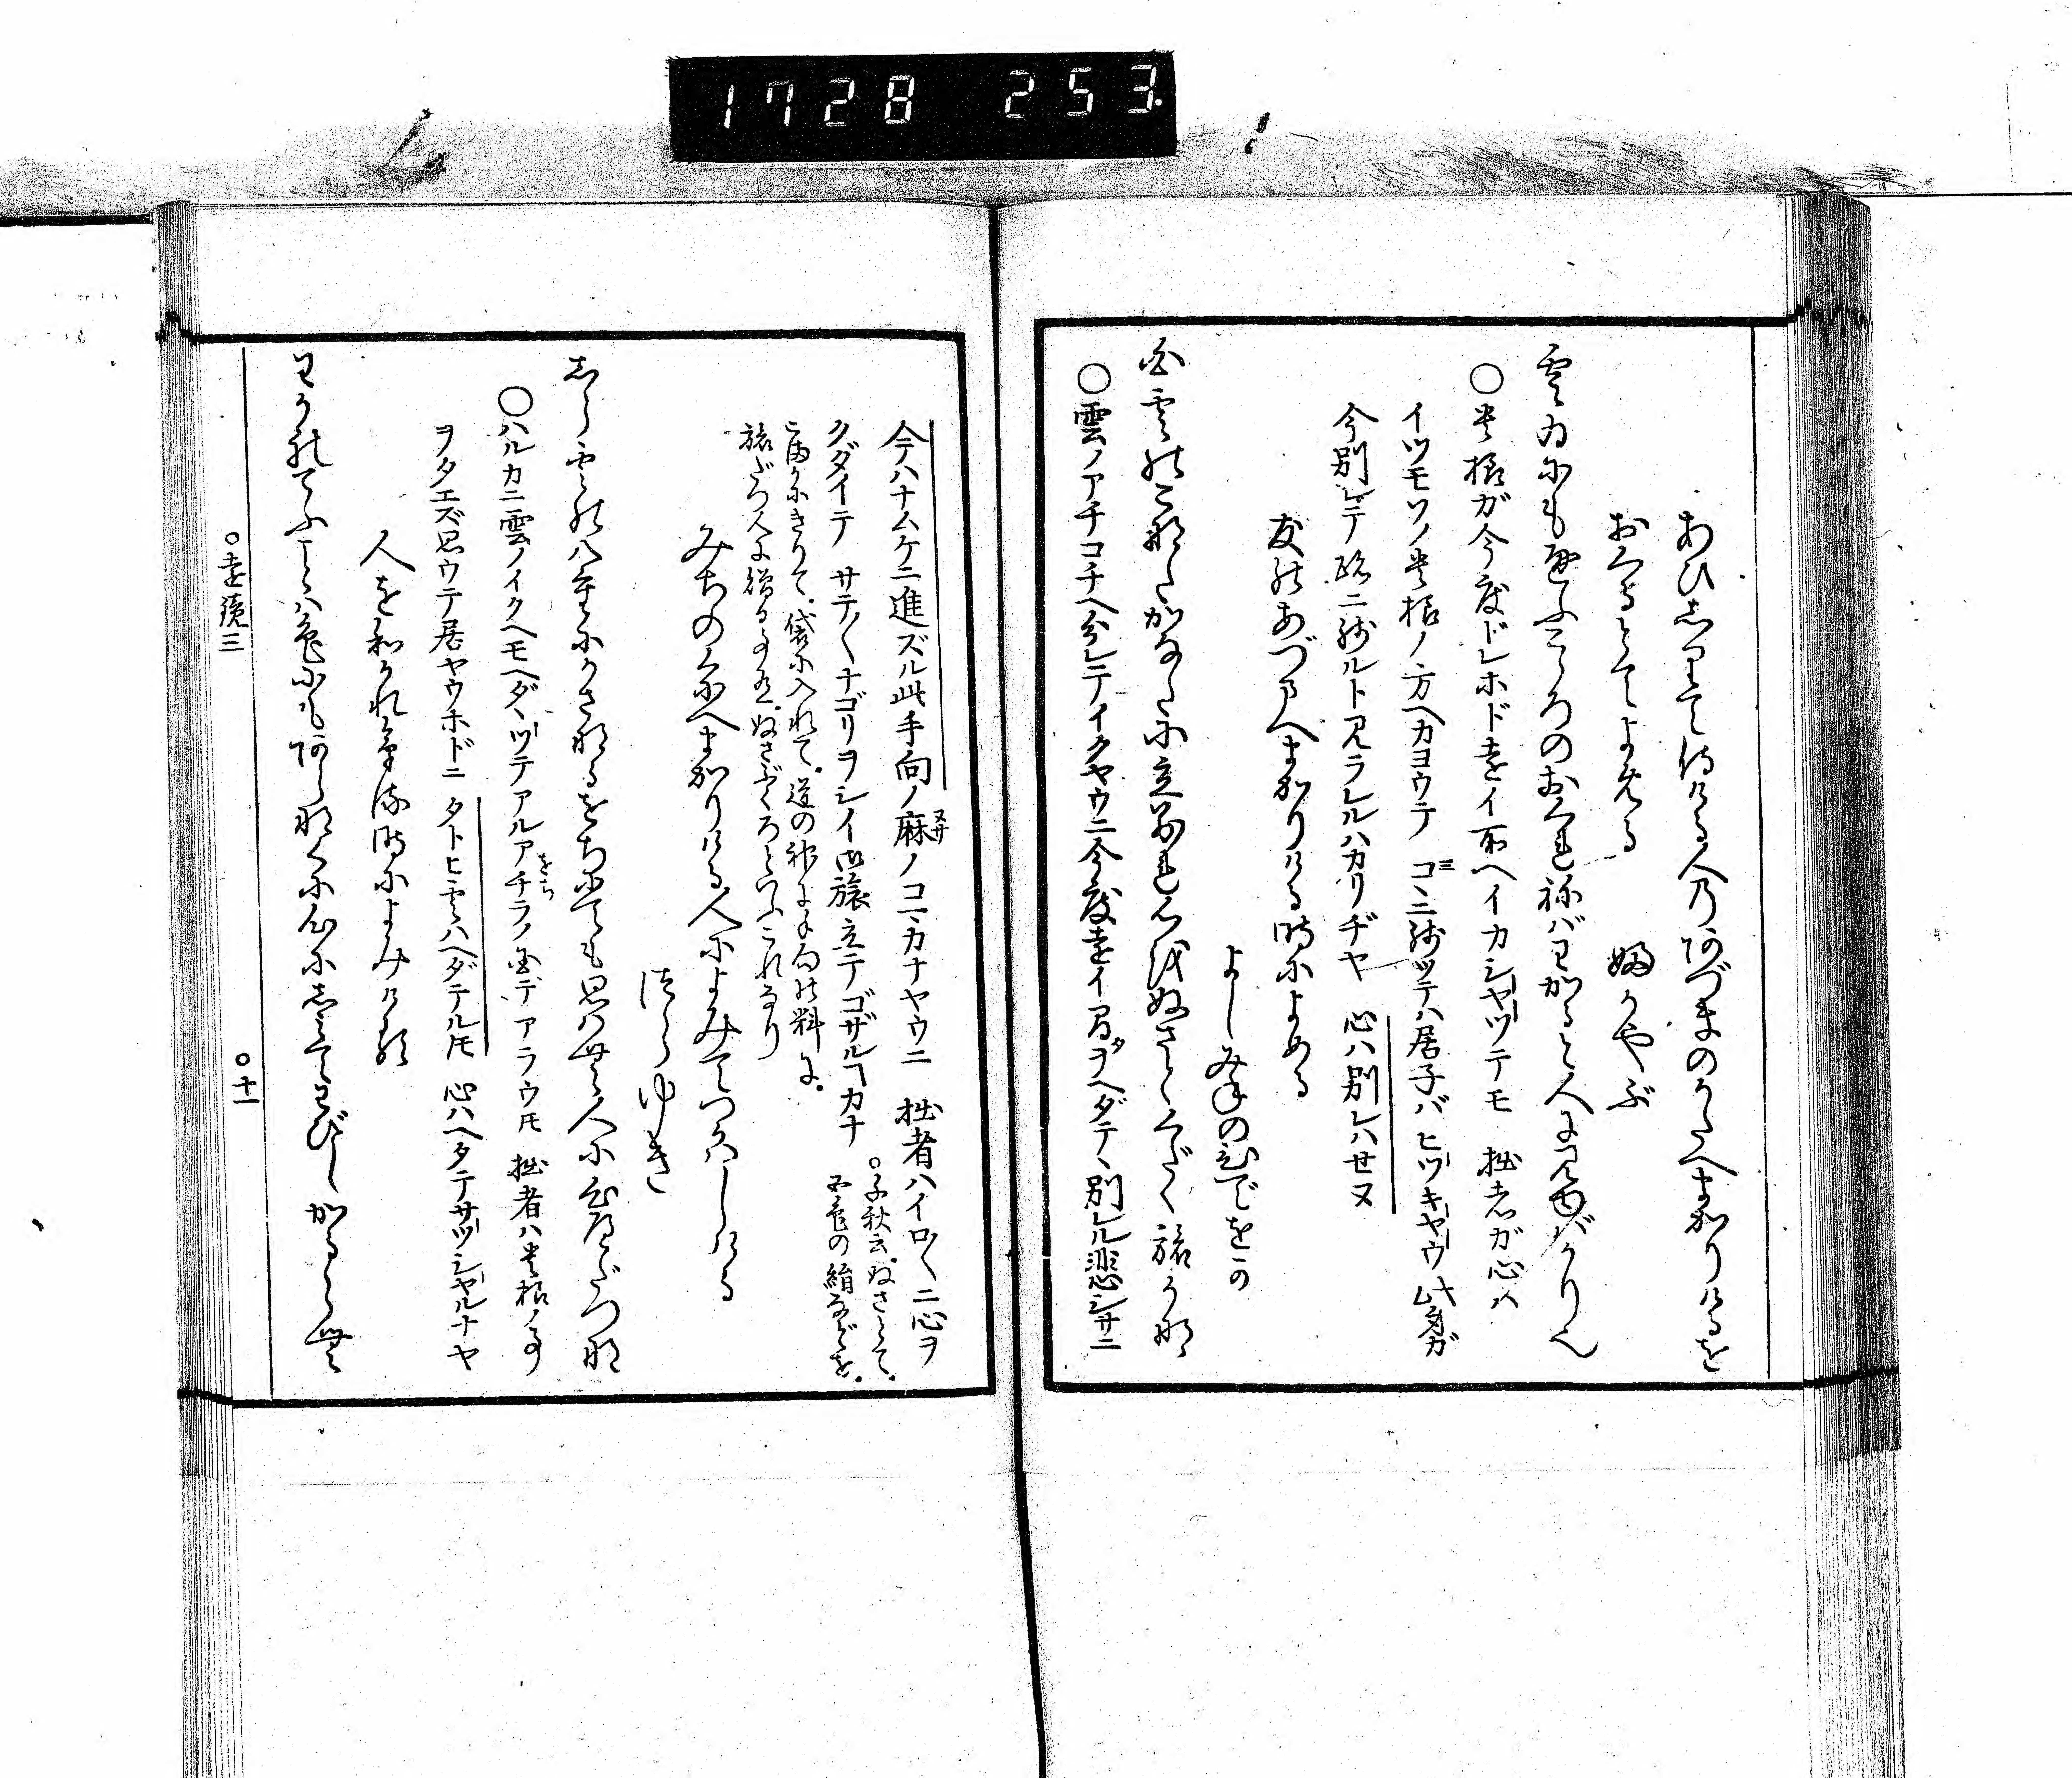 1728 253
あひしりて侍ける人のあづまのかたへまかりけるを
おくるとてよめる　ふかやぶ
雲ゐにもかよふこゝろのおくれねばわかると人に見ゆばかりなり
○貴様ガ今度ドレホド遠イ所ヘイカシヤツテモ　拙者ガ心ハ
イツモソノ貴様ノ方ヘカヨウテ　コヽニ残ツテハ居子バ　ヒツキヤウ此身ガ
今別レテ跡ニ残ルト見ラレルバカリヂヤ　心ハ別レハセヌ
友のあづまへまかりける時によめる
よしみねのひでをか
白雲のこなたかなたに立わかれ心をぬさとくだく旅かな
○雲ノアチコチヘ分レテイクヤウニ今度遠イ間ヲヘダテヽ別レル悲シサニ
今ハナムケニ進ズル此手向ノ麻ノコヽカナヤウニ　拙者ハイロ〱ニ心ヲ
クダイテ　サテ〱ナゴリヲシイ御旅立テゴザルヿカナ　○千秋云ぬさとて。五色の絹などを。
こまかにきりて。袋に入れて。道の神に手向の料に。
旅だつ人に贈る事有。ぬさぶくろといふこれなり
みちのくにへまかりける人によみてつかはしける
つらゆき
しら雲の八重にかさなるをちにても思はむ人に心へだつな
○ハルカニ雲ノイクヘモヘダヽツテアルアチラノ国デアラウ𪜈　拙者ハ貴様ノ事
ヲタエズ思ウテ居ヤウホドニ　タトヒ雲ハヘダテル𪜈　心ハヘダテサツシヤルナヤ
人をわかれける時によみける
わかれてふことは色にもあらなくに心にしみてわびしかるらむ
○遠鏡三　○十一